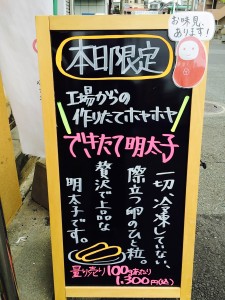 お味見、
あります!
本日限定
工場からの
作りたてホヤホヤ
できたて明太子
一切、冷凍していない、
際立つ卵のひと粒。
贅沢で上品な
明太子です。
量り売り100gあたり
1,300円(込)